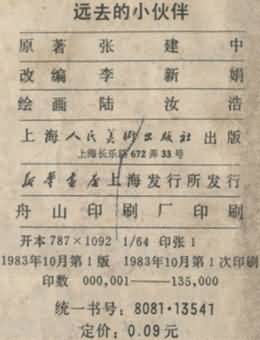 远去的小伙伴
原著 张建中
改编 李新娟
绘画 陆汝浩
上海人民美术出版社出版
上海长乐路672弄33号
新华书店上海发行所发行
舟山印刷厂印刷
开本787×1092 1/64 印张1
1983年10月第1版 1983年10月第1次印刷
印数 000,001——135,000
统一书号：8081·13541
定价：0.09元